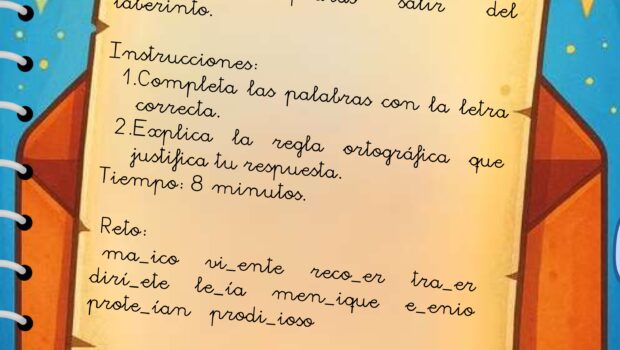 salir del
laberinto.
Instrucciones:
1.Completa las palabras con la letra
correcta.
2.Explica la regla ortográfica que
justifica tu respuesta.
Tiempo: 8 minutos.
Reto:
ma_ico vi_ente reco_er tra_er
dirí_ete le_ía men_ique e_enio
prote_ían prodi_ioso